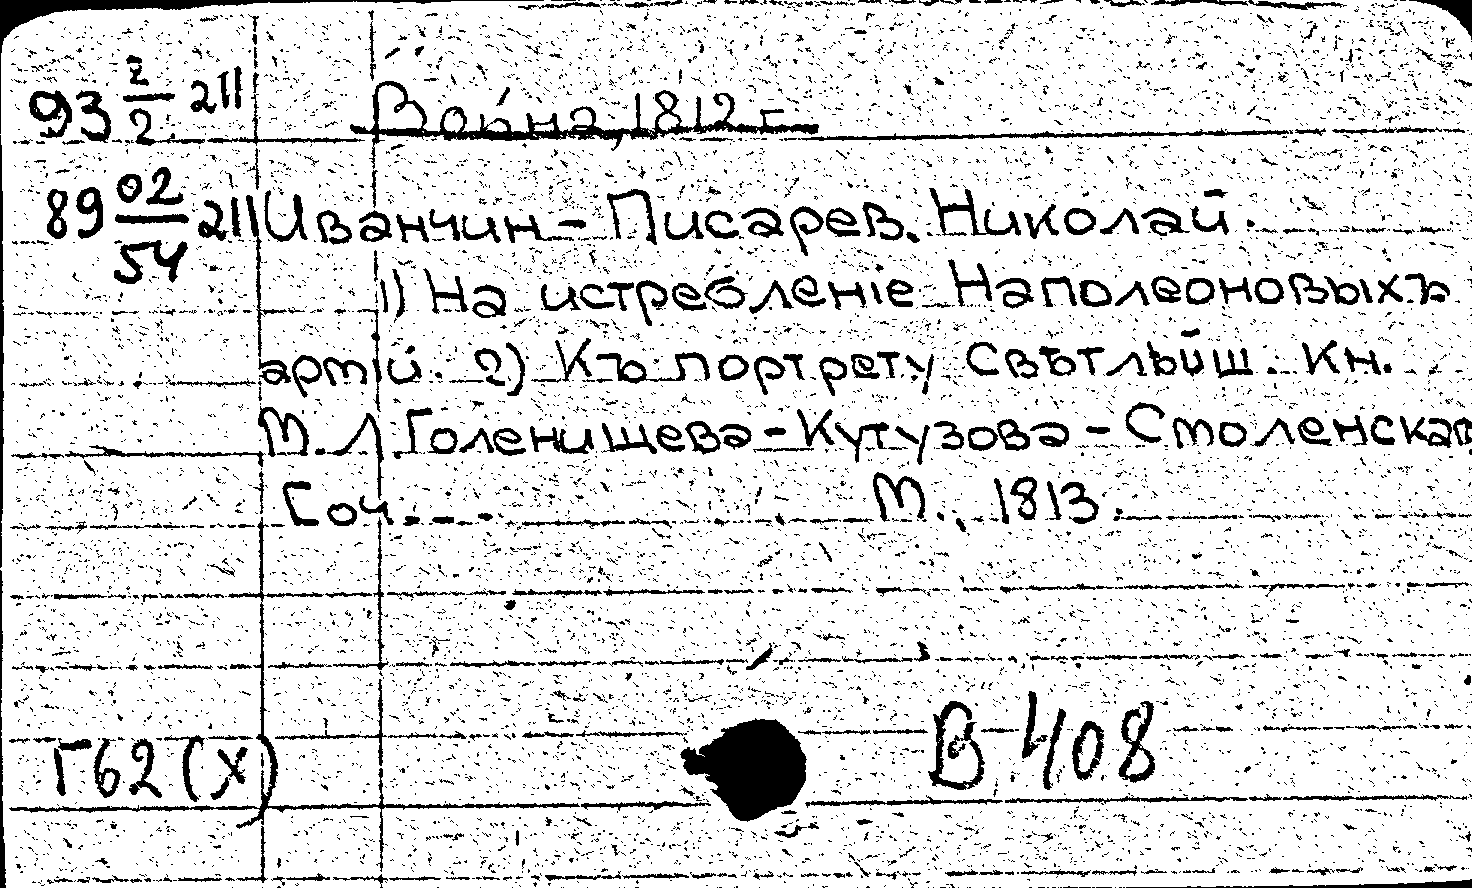 93 2/2 211 Война, 1812 г.
89 02/54 211 Иванчин-Писарев. Николай.
1) На истребленіе Наполеоновыхъ
армій. 2) Къ портрету Свѣтлѣйш. Кн.
М. Л. Голенищева-Кутузова-Смоленскаго
Соч... М., 1813.
Г62(х) В 408